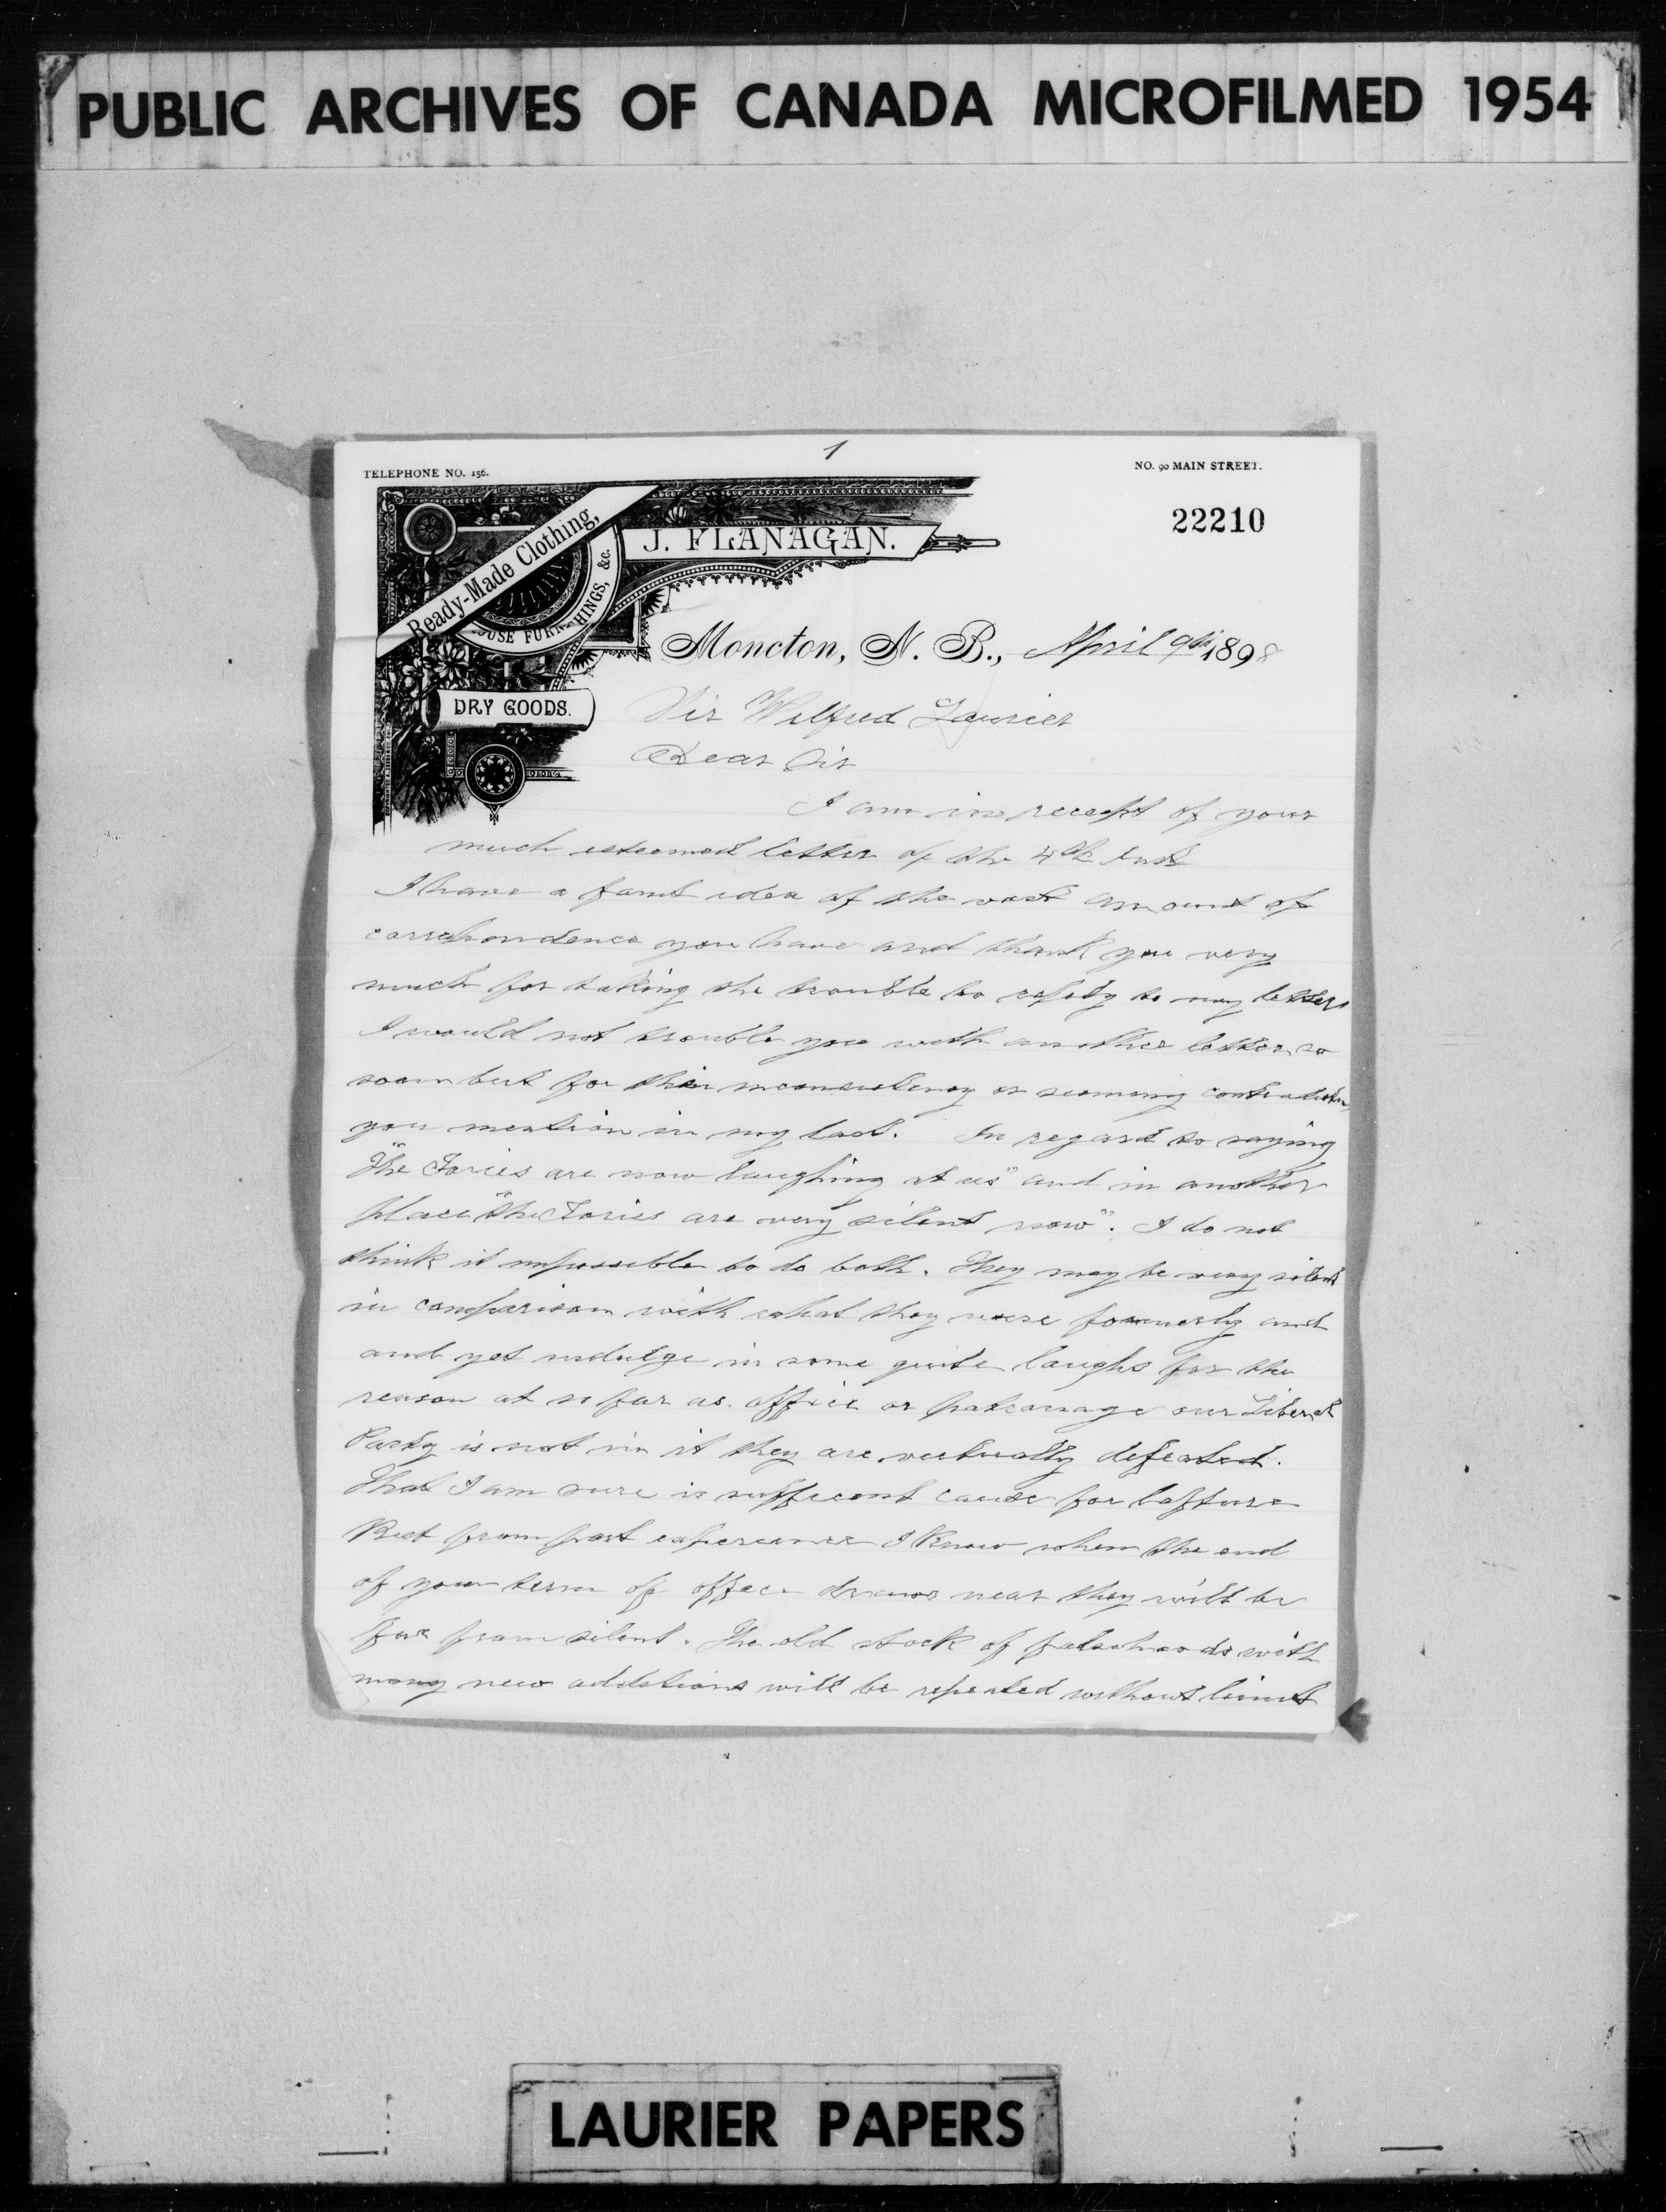 PUBLIC ARCHIVES OF CANADA MICROFILMED 1954
1
TELEPHONE NO. 156.
NO. 90 MAIN STREET.
22210
Ready-Made Clothing,
HOUSE FURNISHINGS, &c.
J. FLANAGAN.
DRY GOODS.
Moncton, N. B., April 9th 1898
Sir Wilfred Laurier
Dear Sir
I am in receept of your
much esteemed letter of the 4th Inst
I have a faint idea of the vast amount of
correspondence you have and thank you very
much for taking the trouble to reply to my letters
I would not trouble you with another letter so
soon but for the inconsistency or seeming contradiction
you mention in my last. In regard to saying
"The Tories are now laughing at us" and in another
place "the Tories are very silent now". I do not
think it impossible to do both. They may be very silent
in comparison with what they were formerly and
and yet indulge in some quite laughs for the
reason at so far as office or patronage our Liberal
Party is not in it they are virtually defeated.
That I am sure is sufficent cause for lafture
But from past experience I Know when the end
of your term of office draws near they will be
far from silent. The old stock of falsehoods with
many new additions will be repeated without limit
LAURIER PAPERS